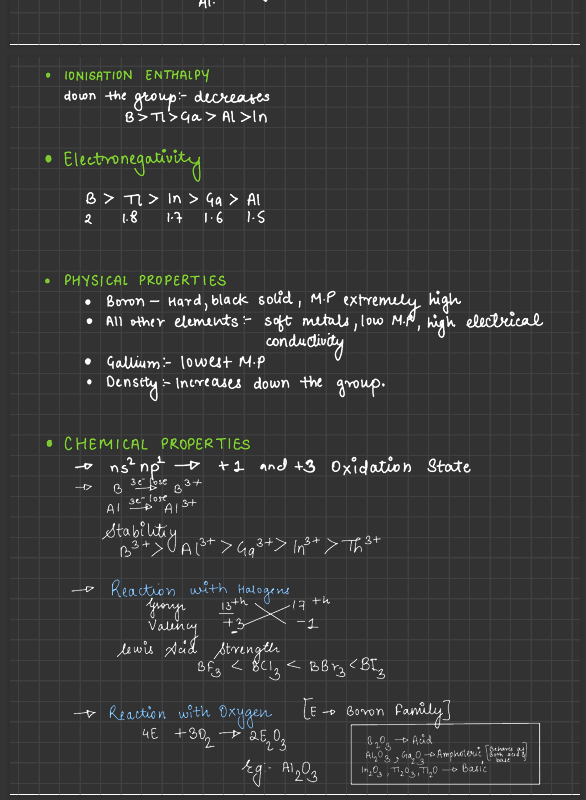 Al.
• IONISATION ENTHALPY
down the group:- decreases
B > Tl > Ga > Al > In
• Electronegativity
B > Tl > In > Ga > Al
2 1.8 1.7 1.6 1.5
• PHYSICAL PROPERTIES
• Boron – Hard, black solid, M.P extremely high
• All other elements:- soft metals, low M.P, high electrical
conductivity
• Gallium:- lowest M.P
• Density:- Increases down the group.
• CHEMICAL PROPERTIES
→ ns² np¹ → +1 and +3 Oxidation State
→ B 3e⁻ lose → B³⁺
Al 3e⁻ lose → Al³⁺
Stability
B³⁺ > Al³⁺ > Ga³⁺ > In³⁺ > Th³⁺
→ Reaction with Halogens
Group 13th 17th
Valency +3 -1
Lewis Acid Strength
BF₃ < BCl₃ < BBr₃ < BI₃
→ Reaction with Oxygen [E → Boron Family]
4E + 3O₂ → 2E₂O₃
Eg:- Al₂O₃
B₂O₃ → Acid
Al₂O₃, Ga₂O → Amphoteric [Behaves as both acid & base]
In₂O₃, Tl₂O₃, Tl₂O → Basic